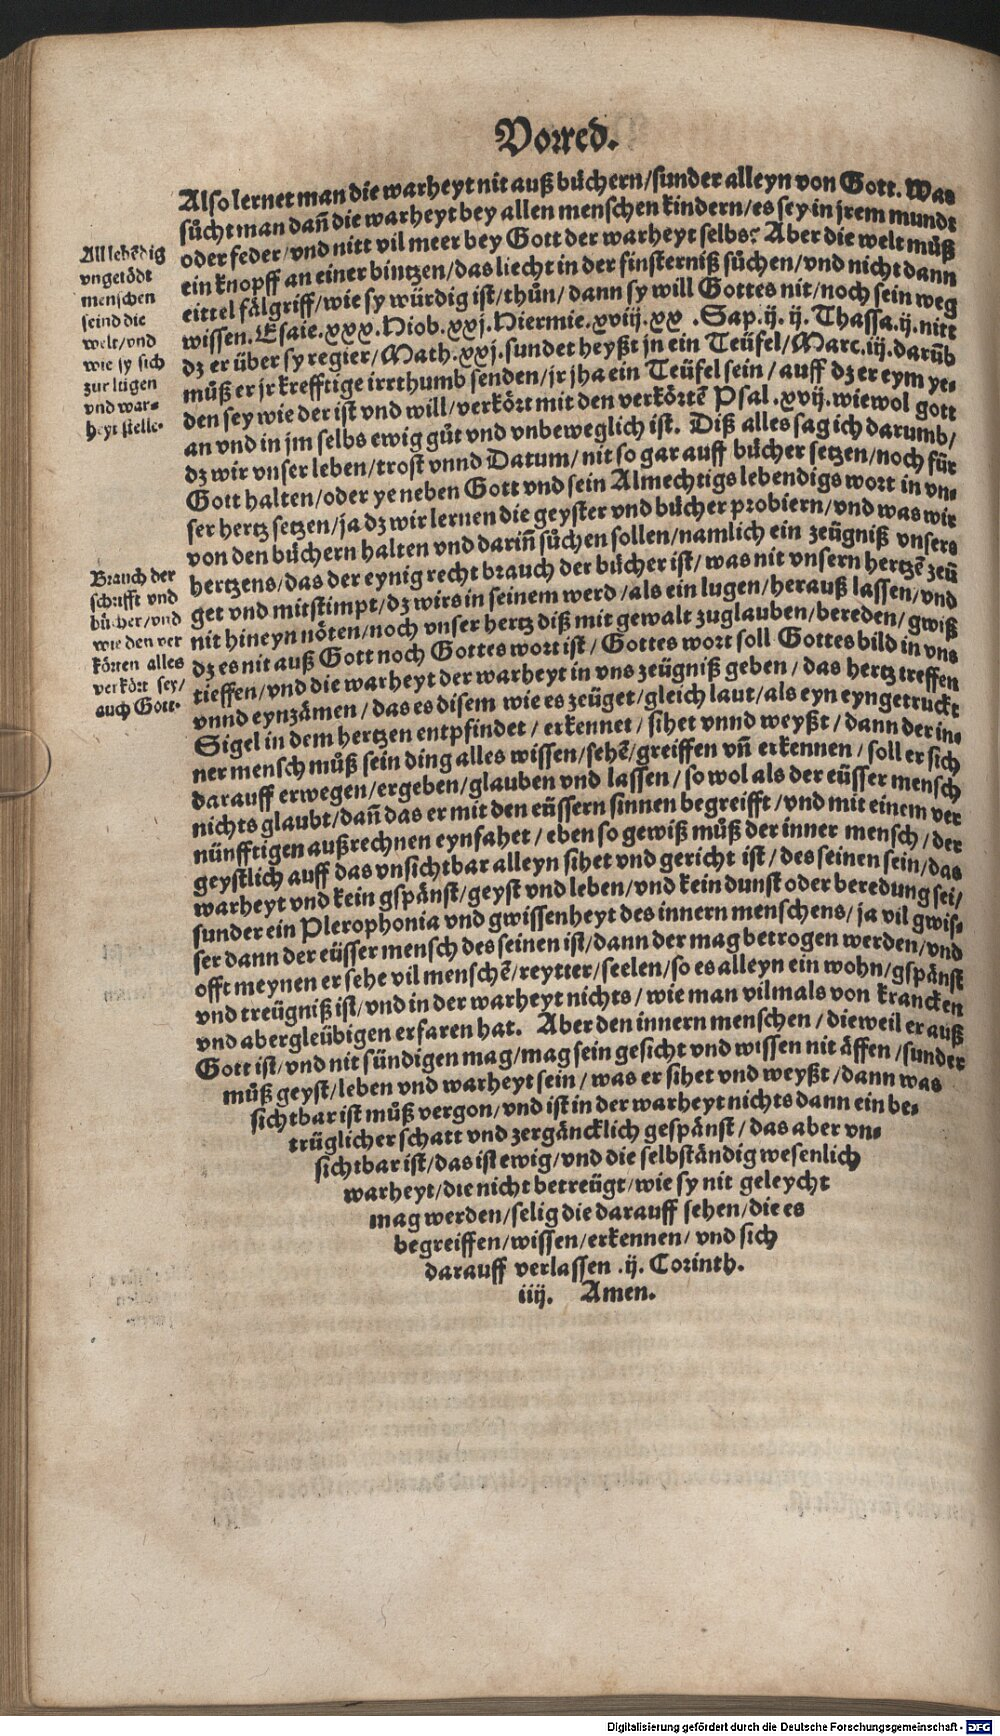 Vorred.
Also lernet man die warheyt nit auß bůchern/sunder alleyn von Gott. Was
sůcht man dañ die warheyt bey allen menschen kindern/es sey in jrem mundt
oder feder/vnd nitt vil meer bey Gott der warheyt selbs? Aber die welt můß
ein knopff an einer bintzen/das liecht in der finsterniß sůchen/vnd nicht dann
eittel fälgriff/wie sy würdig ist/thůn/dann sy will Gottes nit/noch sein weg
wissen. Esaie.xxx.Hiob.xxj.Hiermie.xviij.xx .Sap.ij. ij. Thassa.ij.nitt
dz er über sy regier/Math.xxj.sundet heyßt jn ein Teüfel/Marc.iij.darũb
můß er jr krefftige irrthumb senden/jr jha ein Teüfel sein/auff dz er eym ye⸗
den sey wie der ist vnd will/verkört mit den verkörtẽ Psal.xvij.wiewol gott
an vnd in jm selbs ewig gůt vnd vnbeweglich ist. Diß alles sag ich darumb/
dz wir vnser leben/trost vnnd Datum/nit so gar auff bůcher setzen/noch für
Gott halten/oder ye neben Gott vnd sein Almechtigs lebendigs wort in vn⸗
ser hertz setzen/ja dz wir lernen die geyster vnd bůcher probiern/vnd was wir
von den bůchern halten vnd dariñ sůchen sollen/namlich ein zeügniß vnsers
hertzens/das der eynig recht brauch der bůcher ist/was nit vnsern hertzẽ zeü
get vnd mitstimpt/dz wirs in seinem werd/als ein lugen/herauß lassen/vnd
nit hineyn nöten/noch vnser hertz diß mit gewalt zuglauben/bereden/gwiß
dz es nit auß Gott noch Gottes wort ist/Gottes wort soll Gottes bild in vns
tieffen/vnd die warheyt der warheyt in vns zeügniß geben/das hertz treffen
vnnd eynzämen/das es disem wie es zeüget/gleich laut/als eyn eyngetruckt
Sigel in dem hertzen entpfindet/erkennet/sihet vnnd weyßt/dann der in⸗
ner mensch můß sein ding alles wissen/sehẽ/greiffen vñ erkennen/soll er sich
darauff erwegen/ergeben/glauben vnd lassen/so wol als der eüsser mensch
nichts glaubt/dañ das er mit den eüssern sinnen begreifft/vnd mit einem ver
nünfftigen außrechnen eynfahet/eben so gewiß můß der inner mensch/der
geystlich auff das vnsichtbar alleyn sihet vnd gericht ist/des seinen sein/das
warheyt vnd kein gspänst/geyst vnd leben/vnd kein dunst oder beredung sei/
sunder ein Plerophonia vnd gwissenheyt des innern menschens/ja vil gwis⸗
ser dann der eüsser mensch des seinen ist/dann der mag betrogen werden/vnd
offt meynen er sehe vil menschẽ/reytter/seelen/so es alleyn ein wohn/gspänst
vnd treügniß ist/vnd in der warheyt nichts/wie man vilmals von krancken
vnd abergleübigen erfaren hat. Aber den innern menschen/dieweil er auß
Gott ist/vnd nit sündigen mag/mag sein gesicht vnd wissen nit äffen/sunder
můß geyst/leben vnd warheyt sein/was er sihet vnd weyßt/dann was
sichtbar ist můß vergon/vnd ist in der warheyt nichts dann ein be⸗
trüglicher schatt vnd zergäncklich gespänst/das aber vn⸗
sichtbar ist/das ist ewig/vnd die selbständig wesenlich
warheyt/die nicht betreügt/wie sy nit geleycht
mag werden/selig die darauff sehen/die es
begreiffen/wissen/erkennen/vnd sich
darauff verlassen .ij. Corinth.
iiij. Amen.
All lebẽdig
vngetödt
menschen
seind die
welt/vnd
wie sy sich
zur lügen
vnd war⸗
heyt stelle.
Brauch der
schrifft vnd
bůcher/vnd
wie den ver
körten alles
verkört sey/
auch Gott.
Digitalisierung gefördert durch die Deutsche Forschungsgemeinschaft - DFG